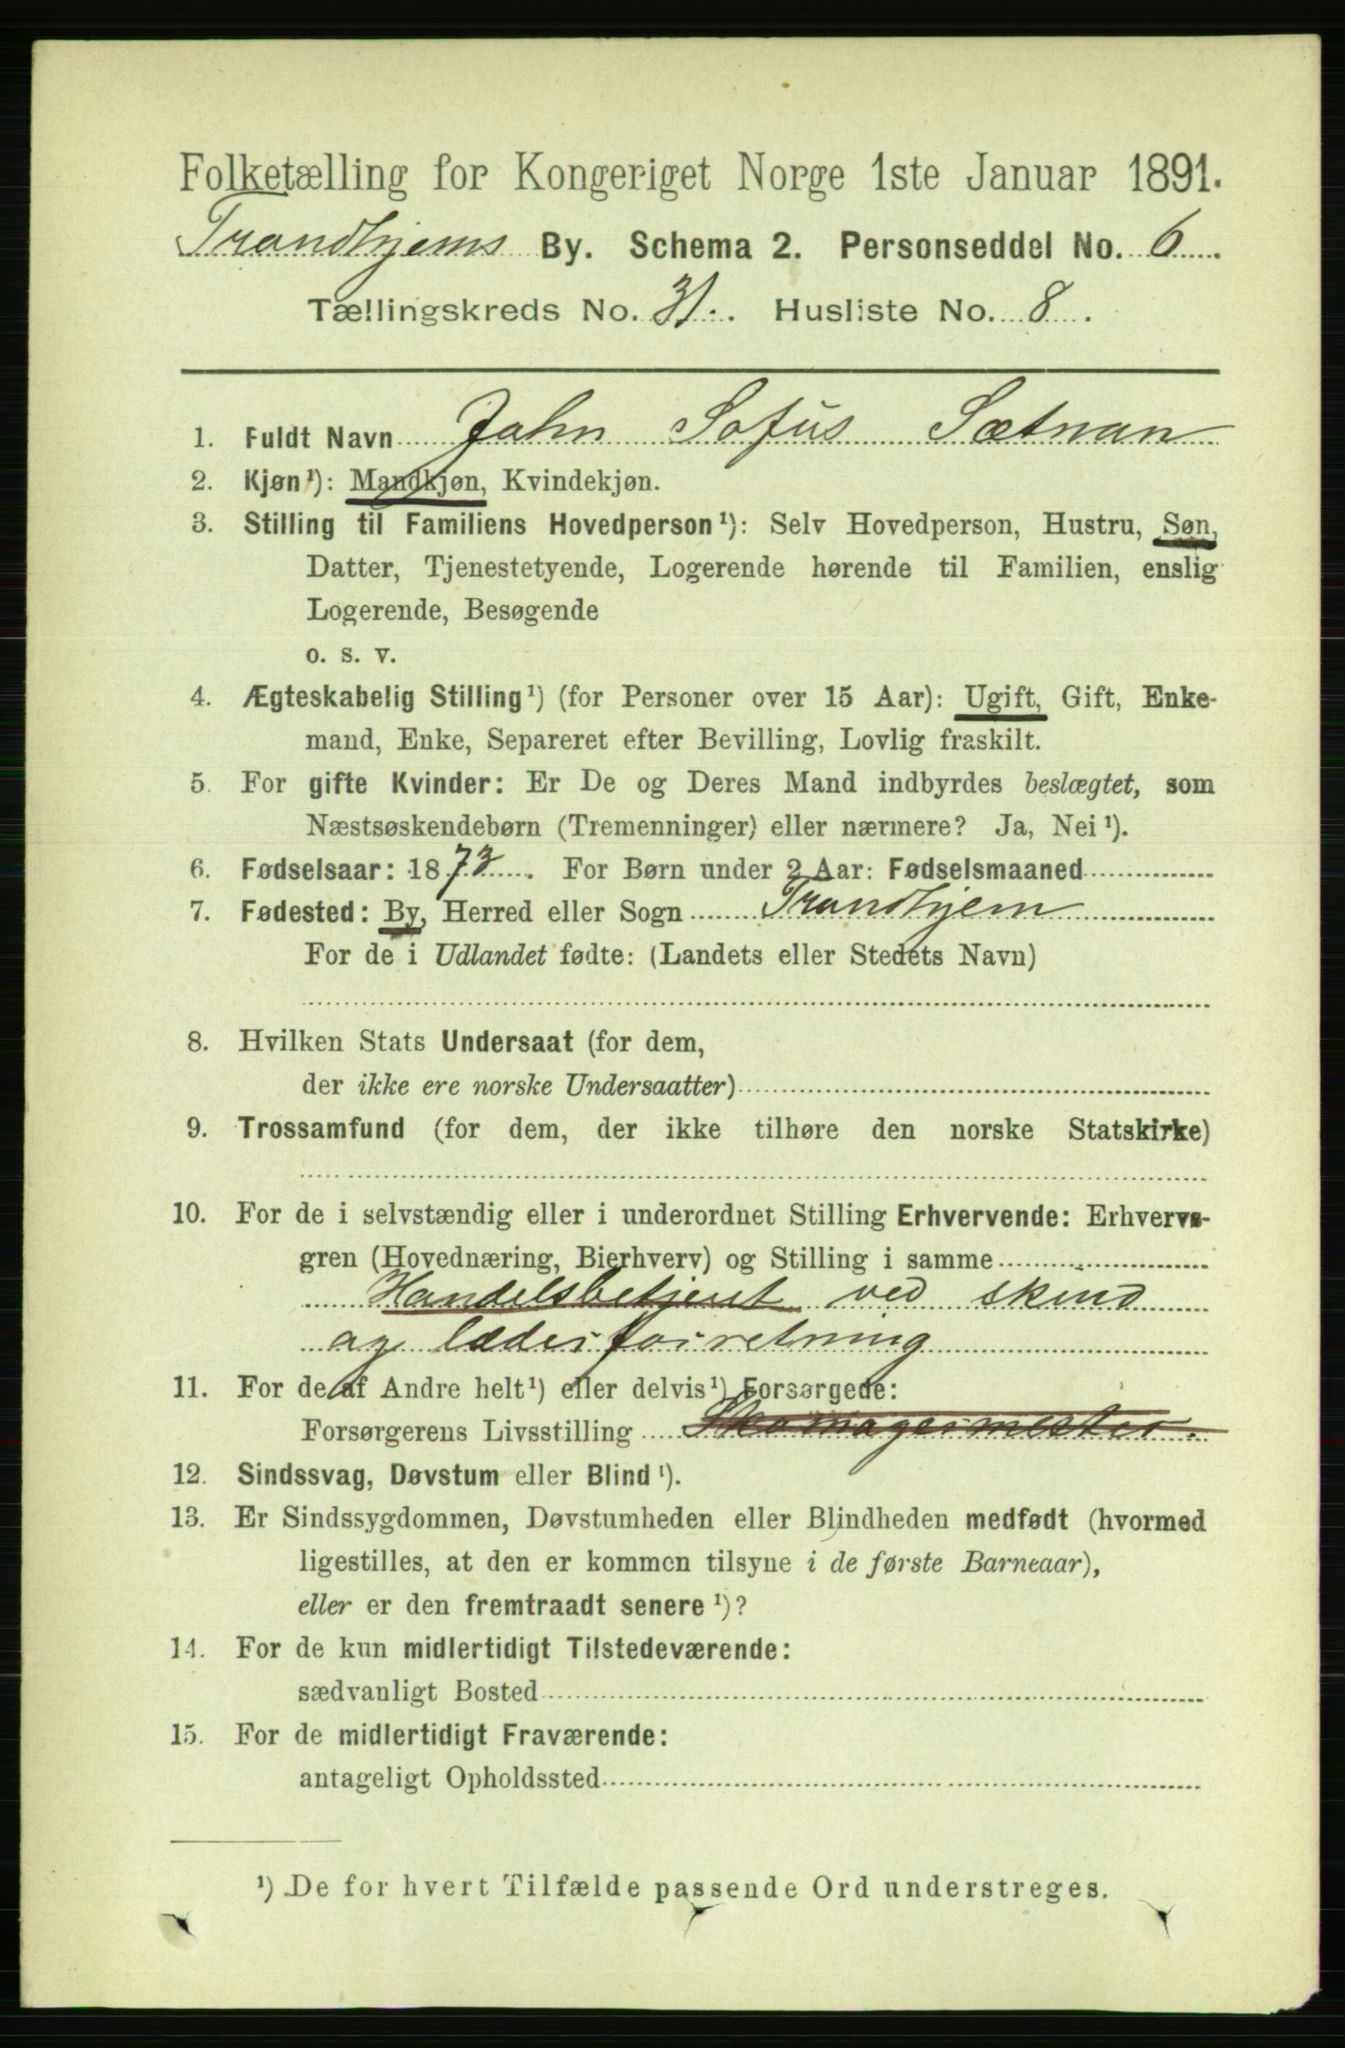 Folketælling for Kongeriget Norge 1ste Januar 1891.
Trondhjems By. Schema 2. Personseddel No. 6.
Tællingskreds No. 31. Husliste No. 8.
1. Fuldt Navn John Sofus Sætnan
2. Kjøn¹): Mandkjøn, Kvindekjøn.
3. Stilling til Familiens Hovedperson¹): Selv Hovedperson, Hustru, Søn,
Datter, Tjenestetyende, Logerende hørende til Familien, enslig
Logerende, Besøgende
o. s. v.
4. Ægteskabelig Stilling¹) (for Personer over 15 Aar): Ugift, Gift, Enke-
mand, Enke, Separeret efter Bevilling, Lovlig fraskilt.
5. For gifte Kvinder: Er De og Deres Mand indbyrdes beslægtet, som
Næstsøskendebørn (Tremenninger) eller nærmere? Ja, Nei¹).
6. Fødselsaar: 1873. For Børn under 2 Aar: Fødselsmaaned
7. Fødested: By, Herred eller Sogn Trondhjem
For de i Udlandet fødte: (Landets eller Stedets Navn)
8. Hvilken Stats Undersaat (for dem,
der ikke ere norske Undersaatter)
9. Trossamfund (for dem, der ikke tilhøre den norske Statskirke)
10. For de i selvstændig eller i underordnet Stilling Erhvervende: Erhvervs-
gren (Hovednæring, Bierhverv) og Stilling i samme
Handelsbetjent ved skind
og læderforretning
11. For de af Andre helt¹) eller delvis¹) Forsørgede:
Forsørgerens Livsstilling Skomagermester.
12. Sindssvag, Døvstum eller Blind¹).
13. Er Sindssygdommen, Døvstumheden eller Blindheden medfødt (hvormed
ligestilles, at den er kommen tilsyne i de første Barneaar),
eller er den fremtraadt senere¹)?
14. For de kun midlertidigt Tilstedeværende:
sædvanligt Bosted
15. For de midlertidigt Fraværende:
antageligt Opholdssted
¹) De for hvert Tilfælde passende Ord understreges.